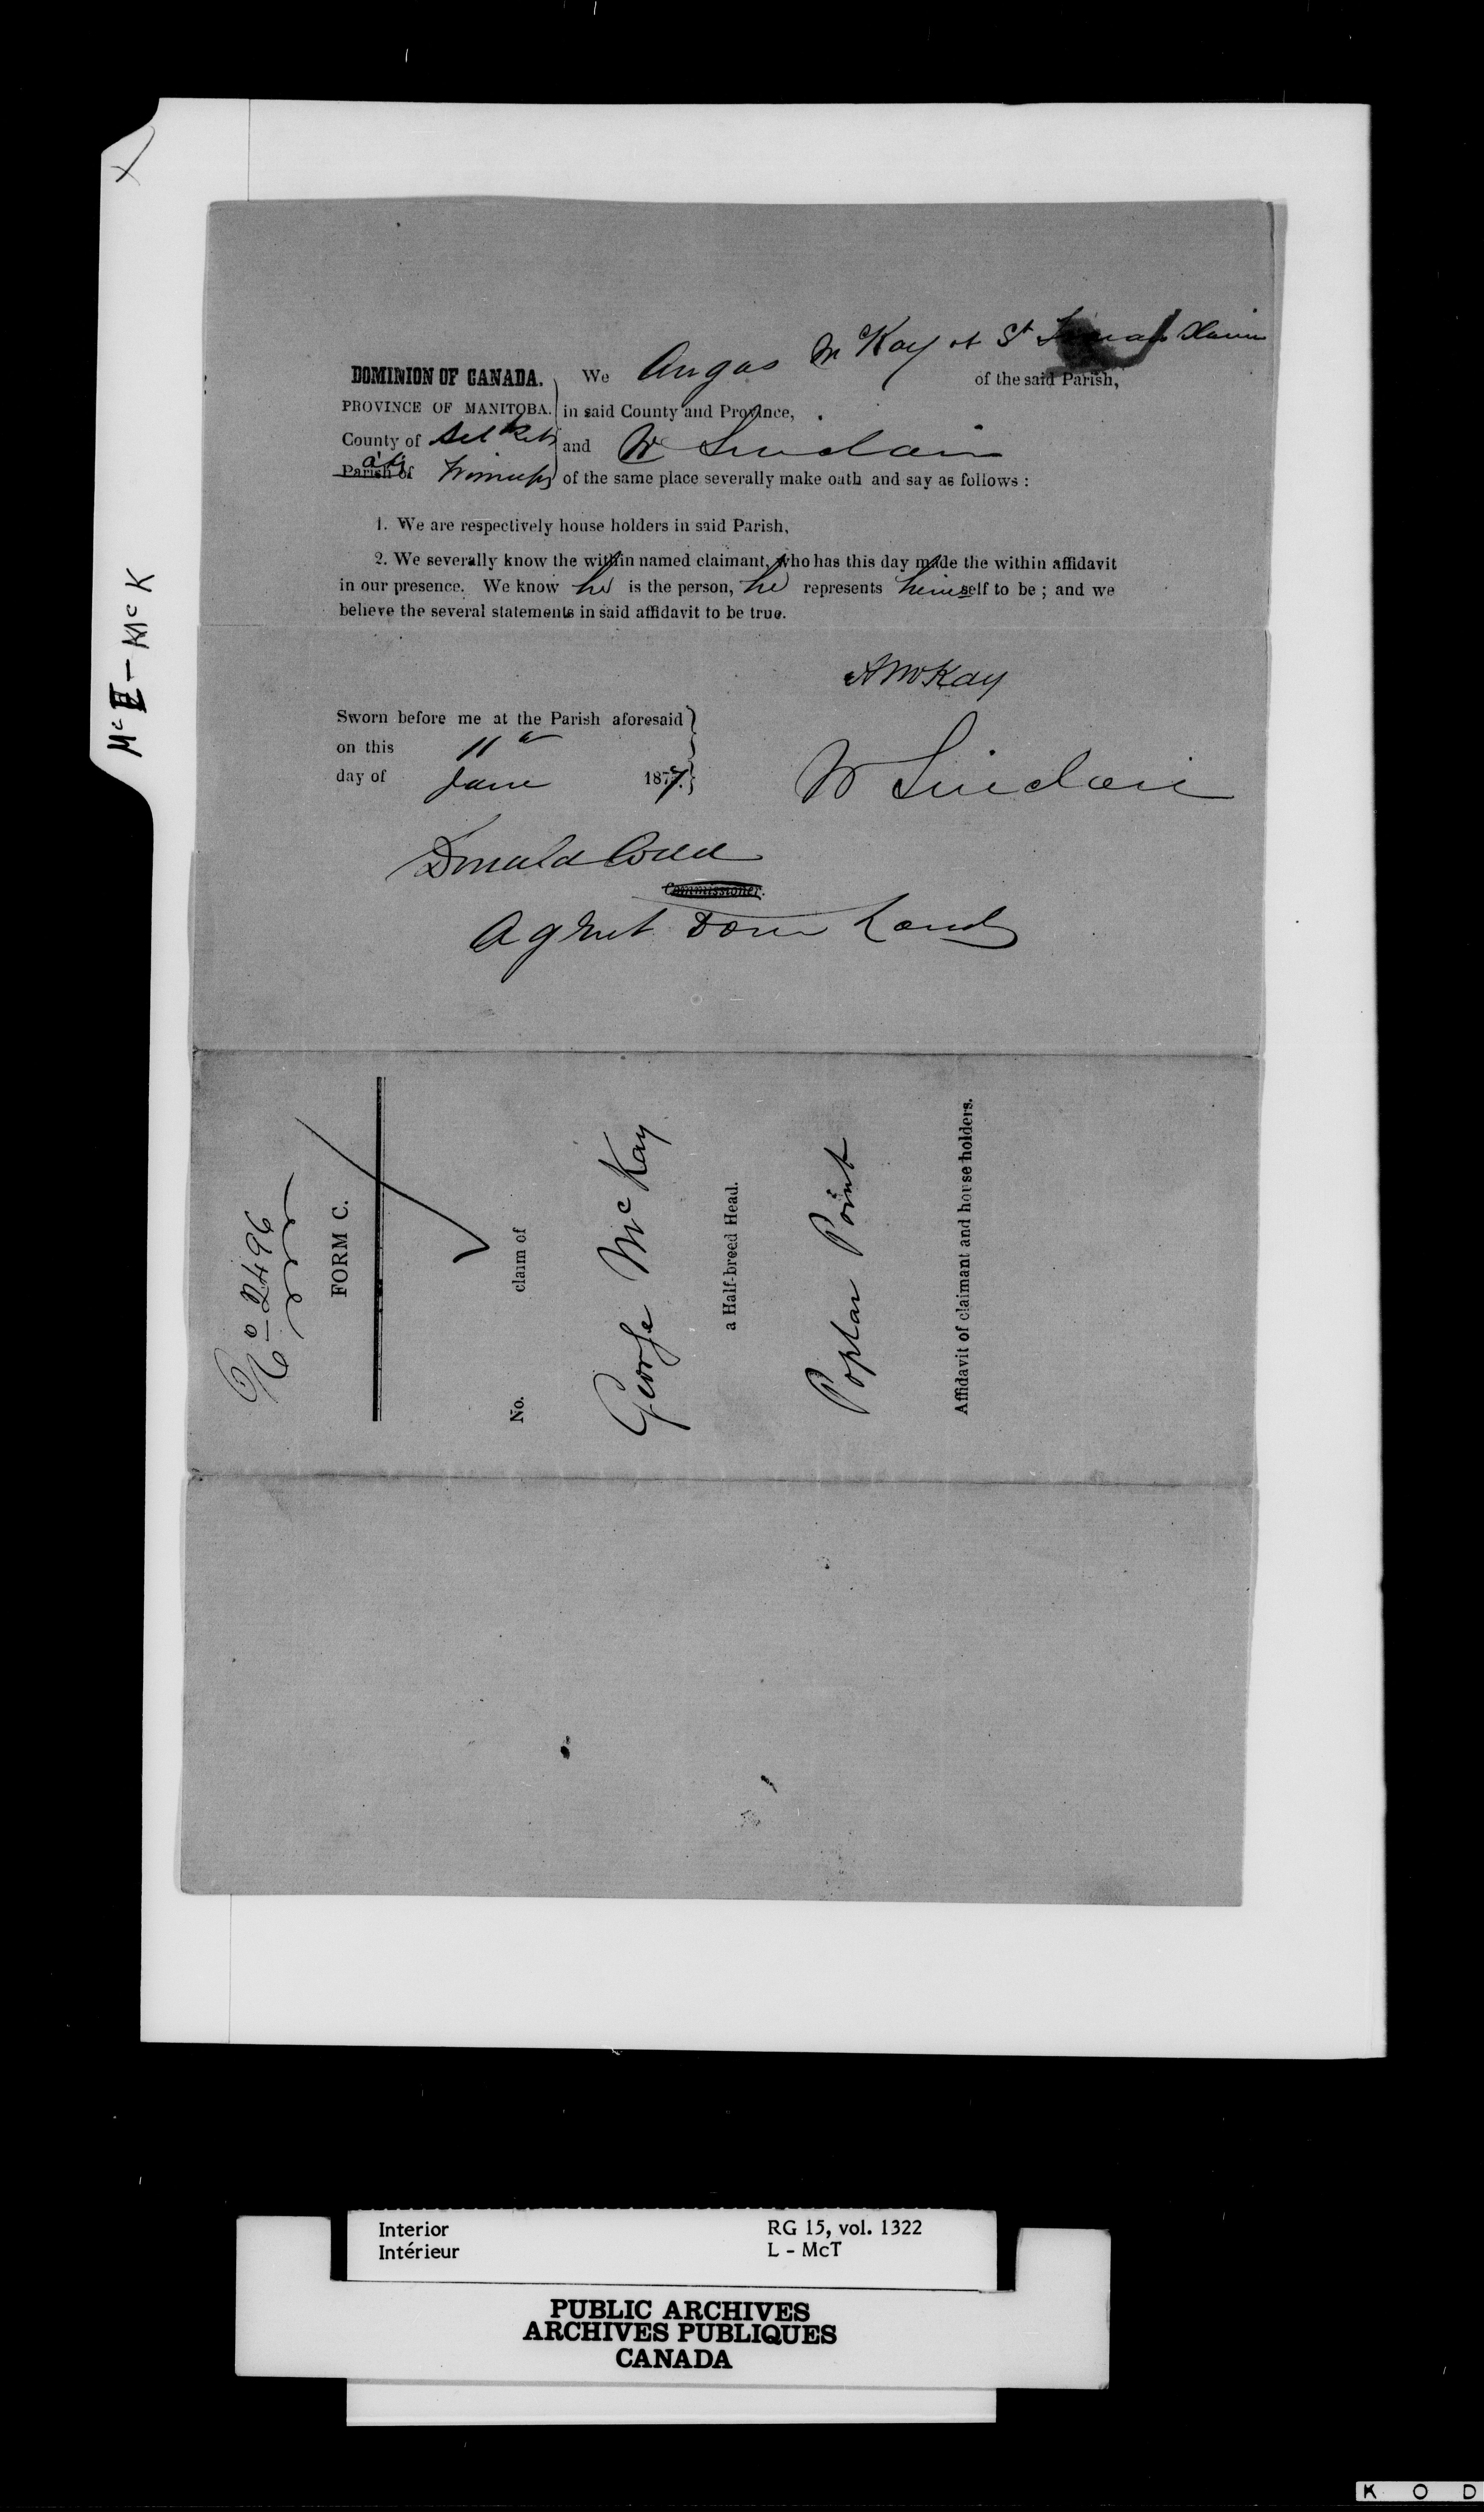 Mc E - McK
We Angas McKay of St Xavier
DOMINION OF CANADA. of the said Parish,
PROVINCE OF MANITOBA. in said County and Province,
County of Selkirk and W Sinclair
Parish of of the same place severally make oath and say as follows :
1. We are respectively house holders in said Parish,
2. We severally know the within named claimant, who has this day made the within affidavit
in our presence. We know he is the person, he represents himself to be ; and we
believe the several statements in said affidavit to be true.
A McKay
Sworn before me at the Parish aforesaid
on this 11th
day of June 1877.
W Sinclair
Donald Codd
Commissioner.
Agent Dom Lands
No 2496
FORM C.
No. claim of
George McKay
a Half-breed Head.
Poplar Point
Affidavit of claimant and house holders.
Interior RG 15, vol. 1322
Intérieur L - McT
PUBLIC ARCHIVES
ARCHIVES PUBLIQUES
CANADA
K O D